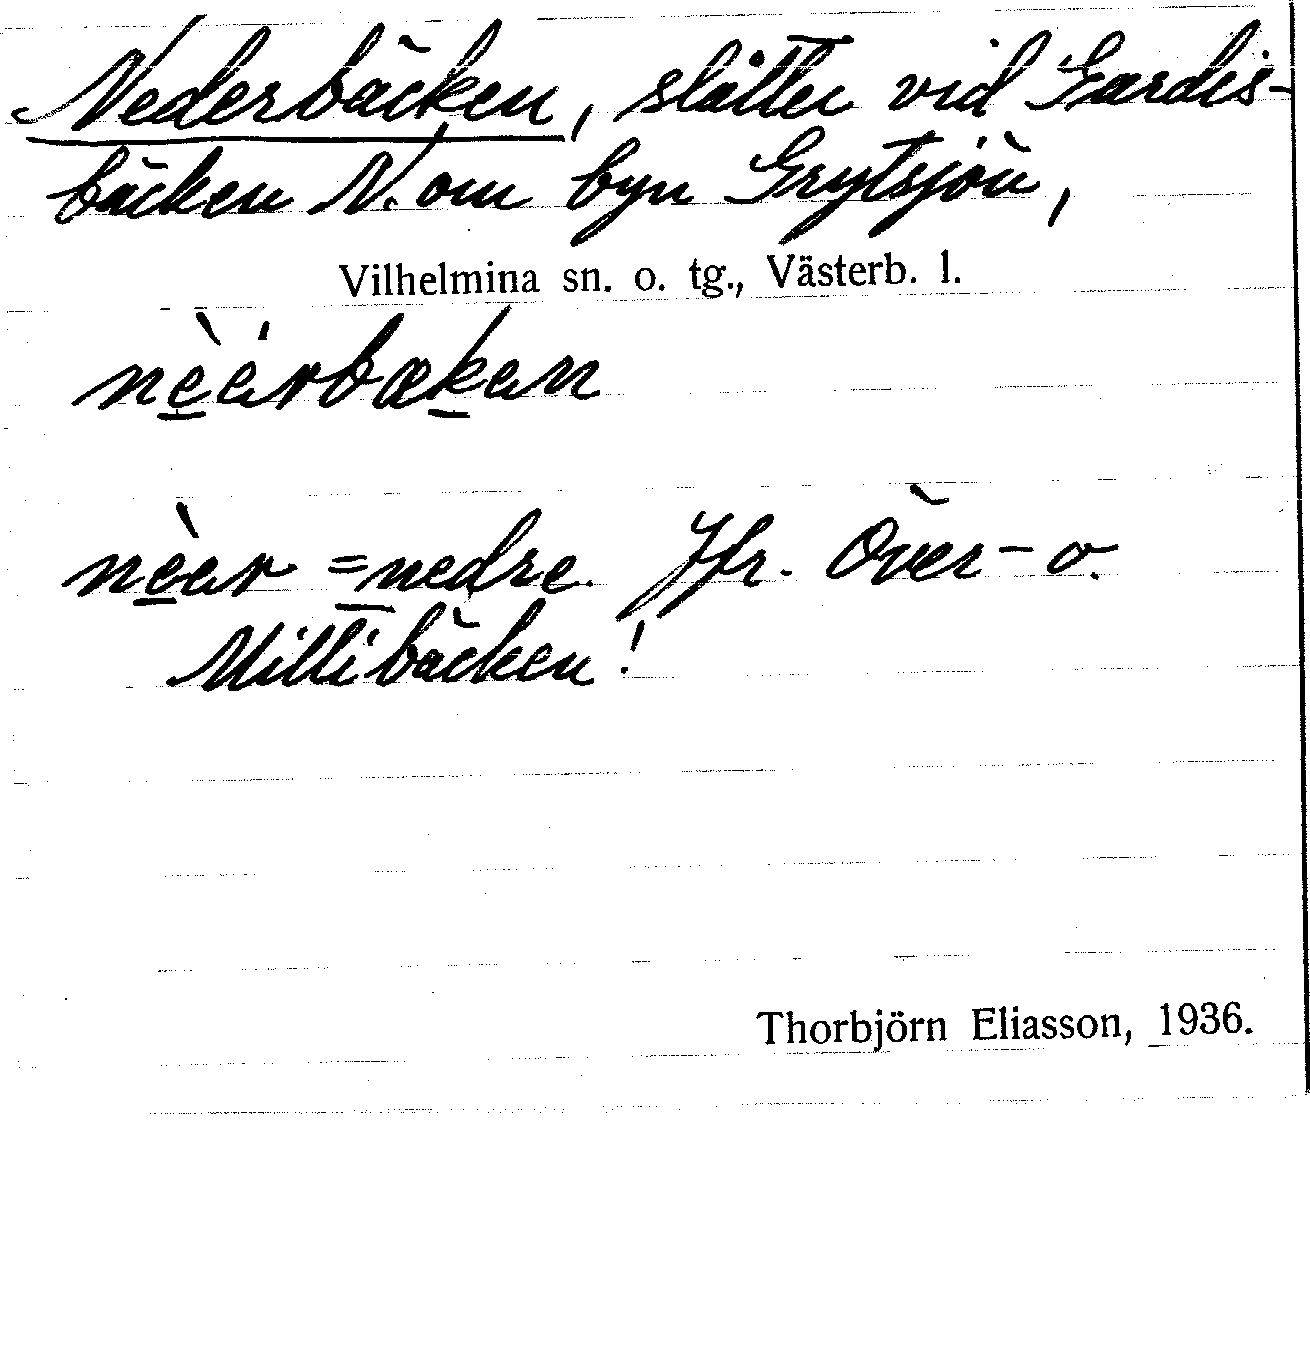 Nederbäcken, slåtter vid Gardis-
bäcken N. om byn Grytsjön,
Vilhelmina sn. o. tg., Västerb. l.
nèe̍rbækæn
nèer = nedre. Jfr. Över- o.
Mittibäcken!
Thorbjörn Eliasson, 1936.